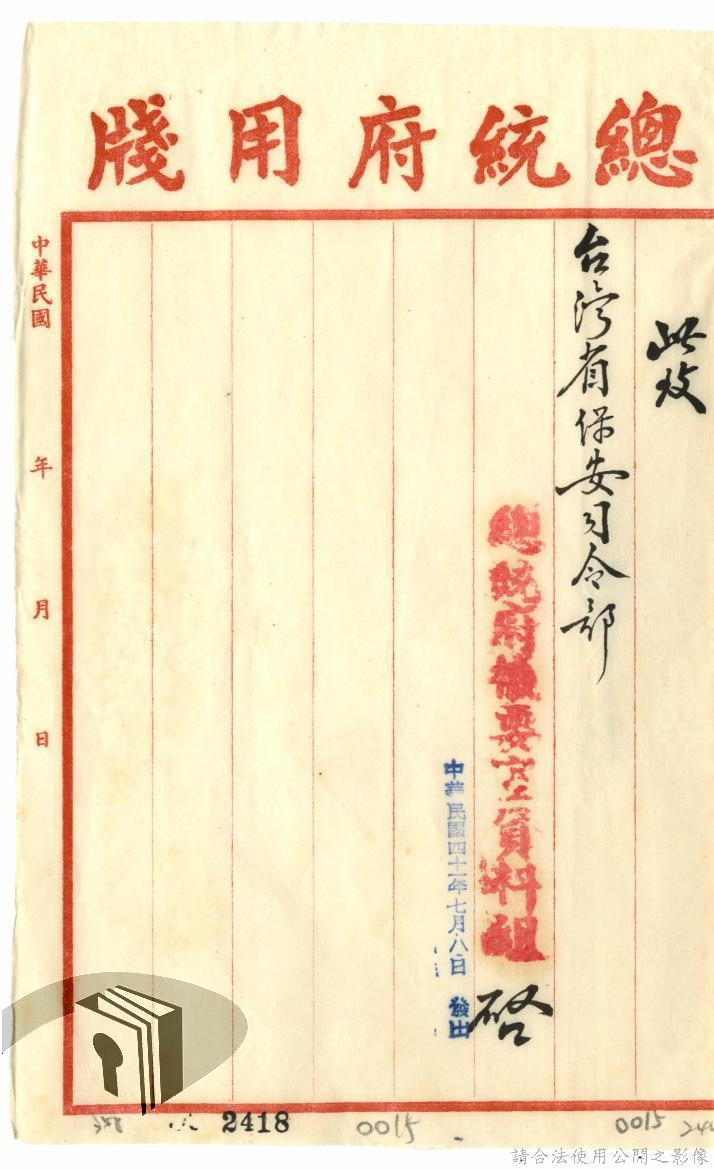 總統府用牋
此致
台湾省保安司令部
總統府機要室資料組
啓
中華民國四十一年七月八日 發出
中華民國 年 月 日
2418 0015 0015
請合法使用公開之影像